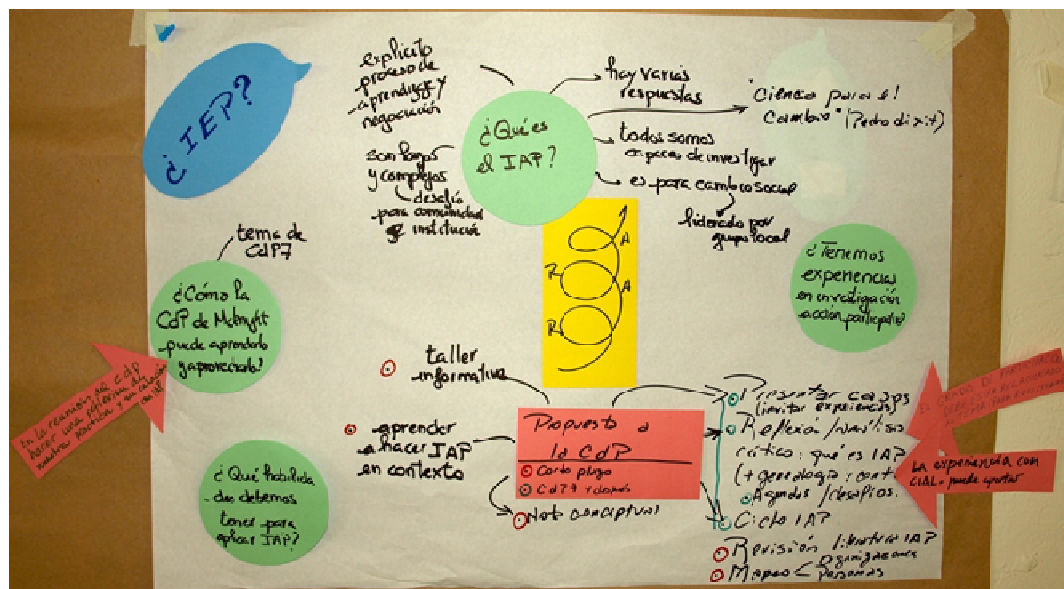 ¿IEP?
explicito
proceso de
aprendizaje y
negociación
son largos
y complejos
desafío
para comunidad
institución
¿Qué es
el IAP?
hay varias
respuestas
"Ciencia para el
Cambio" (Pedro dixit)
todos somos
capaces de investigar
es para cambio social
liderado por
grupo local
R
A
R
A
¿Tenemos
experiencias
en investigación
acción participativa?
tema de
CdP7
¿Cómo la
CdP de McKnight
puede aprenderlo
y aprovecharlo?
En la reunión de CdP
hacer una
nuestra práctica y su relación
con IAP
¿Qué habilida
des debemos
tener para
aplicar IAP?
taller
informativo
aprender
a hacer IAP
en contexto
Propuesta a
la CdP
Corto plazo
CdP9 + después
Nota conceptual
Presentar casos
(invitar experiencias)
Reflexión / análisis
crítico: qué es IAP
(+ genealogía: cont
Agendas / desafíos.
Ciclo IAP
Revisión literatura IAP
Mapeo < organizaciones
personas
EL GRADO DE PARTICIPACIÓN
La experiencia con
CIAL - puede aportar